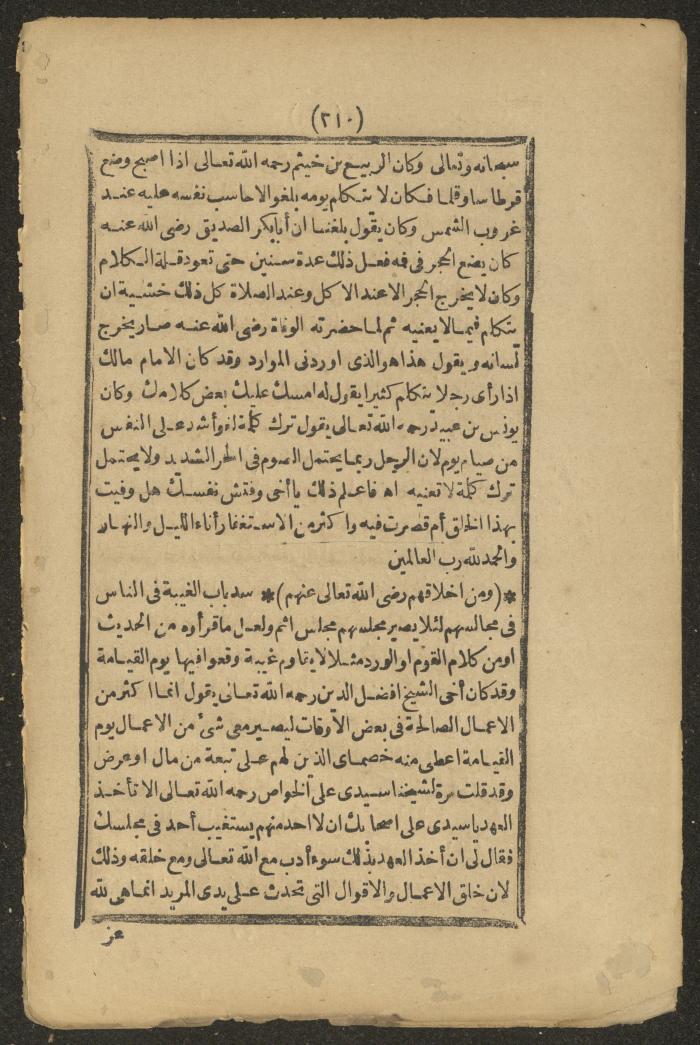 (٢١٠)
سبحانه وتعالى وكان الربيع بن خيثم رحمه الله تعالى اذا اصبح وضع
قرطاسا وقلما فكان لا يتكلم يومه بلغو الا حاسب نفسه عليه عند
غروب الشمس وكان يقول بلغنا ان أبابكر الصديق رضى الله عنه
كان يضع الحجر فى فمه فعل ذلك عدة سنين حتى تعود قلة الكلام
وكان لا يخرج الحجر الا عند الاكل وعند الصلاة كل ذلك خشية ان
يتكلم فيما لا يعنيه ثم لما حضرته الوفاة رضى الله عنه صار يخرج
لسانه ويقول هذا هو الذى اوردنى الموارد وقد كان الامام مالك
اذا رأى رجلا يتكلم كثيرا يقول له امسك عليك بعض كلامك وكان
يونس بن عبيد رحمه الله تعالى يقول ترك كلمة لغو أشد على النفس
من صيام يوم لان الرجل ربما يحتمل الصوم فى الحر الشديد ولا يحتمل
ترك كلمة لا تعنيه اه فاعلم ذلك يا أخى وفتش نفسك هل وفيت
بهذا الخلق أم قصرت فيه واكثر من الاستغفار أناء الليل والنهار
والحمد لله رب العالمين
*(ومن اخلاقهم رضى الله تعالى عنهم)* سد باب الغيبة فى الناس
فى مجالسهم لئلا يصير مجلسهم مجلس اثم ولعل ما قرأوه من الحديث
او من كلام القوم او الورد مثلا لا يقاوم غيبة وقعوا فيها يوم القيامة
وقد كان أخى الشيخ افضل الدين رحمه الله تعالى يقول انما اكثر من
الاعمال الصالحة فى بعض الأوقات ليصير معى شئ من الاعمال يوم
القيامة اعطى منه خصماى الذين لهم على تبعة من مال او عرض
وقد قلت مرة لشيخنا سيدى على الخواص رحمه الله تعالى الا تأخذ
العهد يا سيدى على اصحابك ان لا احد منهم يستغيب أحد فى مجلسك
فقال لى ان أخذ العهد بذلك سوء أدب مع الله تعالى ومع خلقه وذلك
لان خلق الاعمال والاقوال التى تحدث على يدى المريد انما هى لله
عز